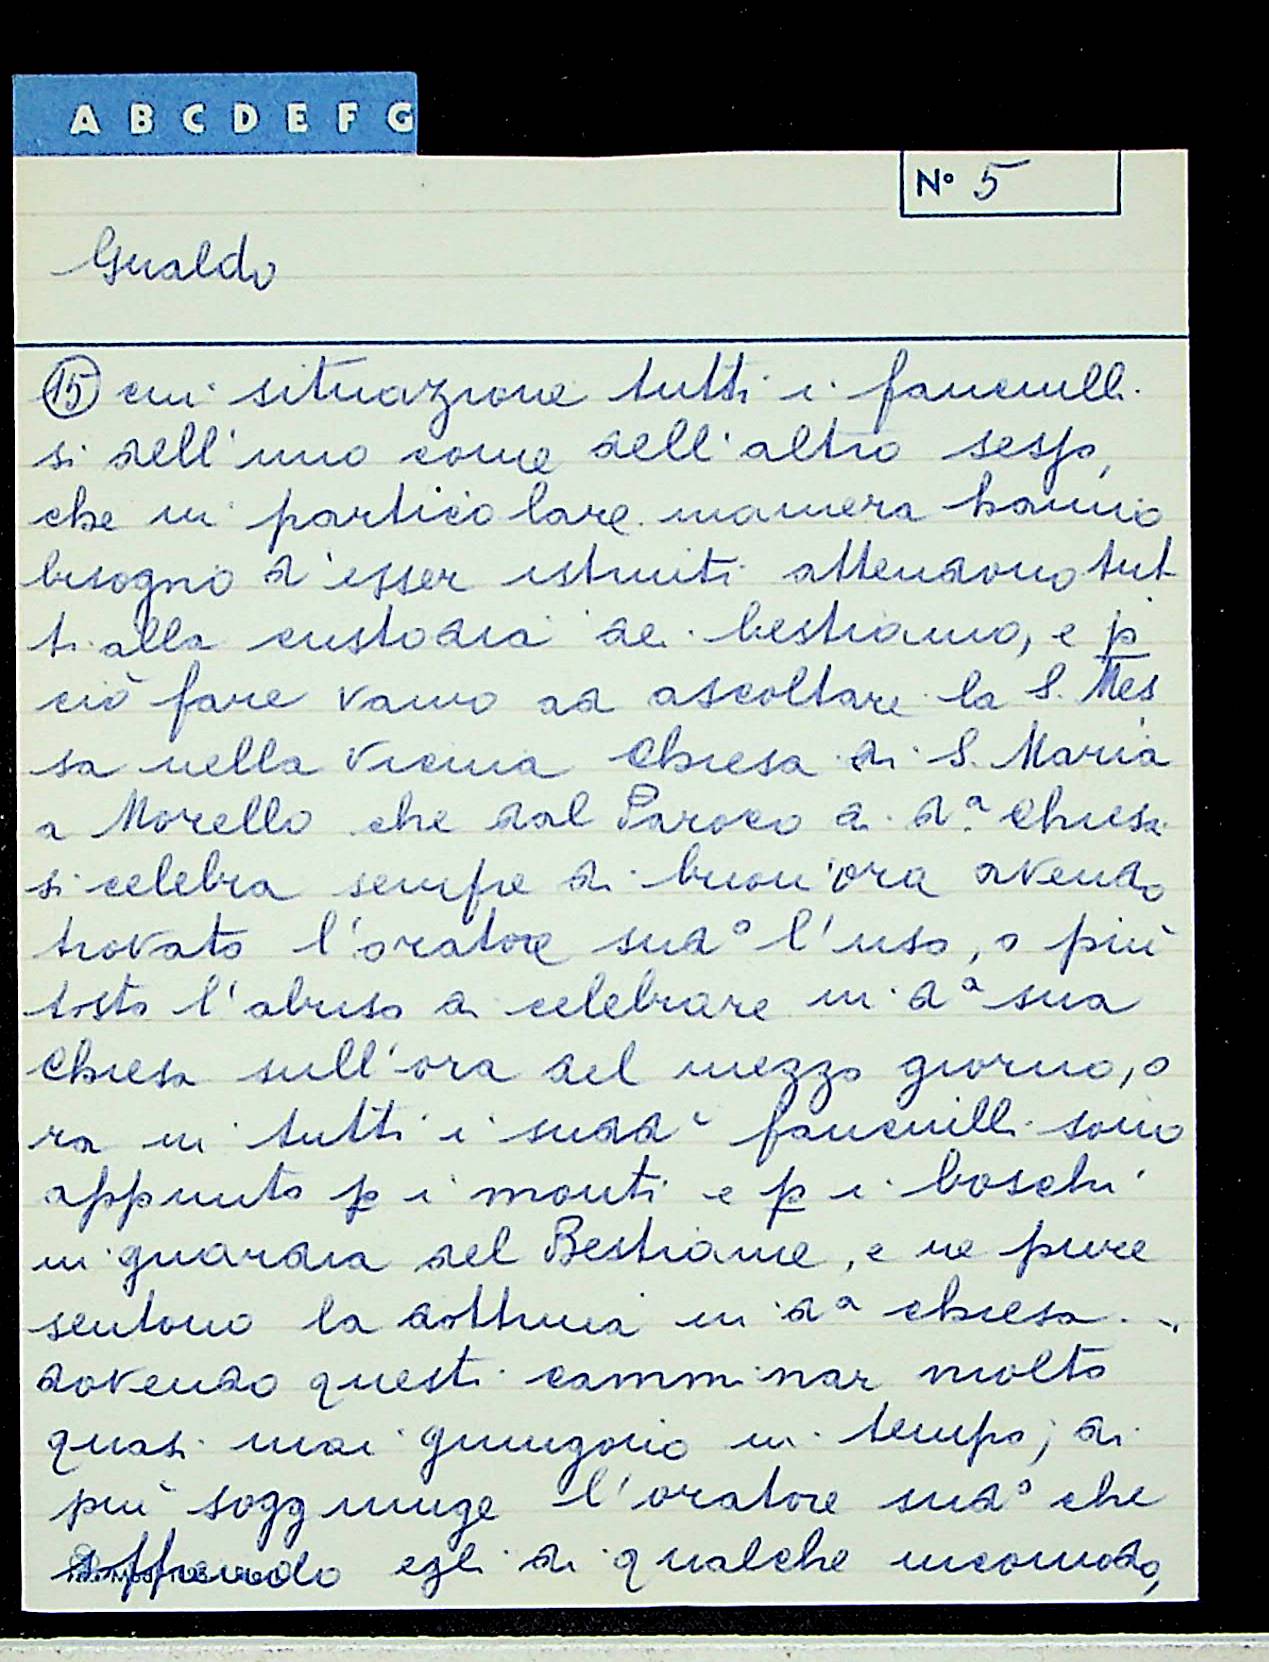 A B C D E F G
N° 5
Gualdo
15 cui situazione tutti i fanciulli
si dell'uno come dell'altro sesso,
che in particolare maniera hanno
bisogno d'esser istruiti attendono tut
ti alla custodia de bestiamo, e p
ciò fare vanno ad ascoltare la S. Mes
sa nella vicina Chiesa di S. Maria
a Morello che dal Paroco di d.ª Chiesa
si celebra sempre di buon'ora avendo
trovato l'oratore sud° l'uso, o più
tosto l'abuso di celebrare in dª sua
Chiesa sull'ora del mezzo giorno, o
ra in tutti i sudd i fanciulli sono
appunto p i monti e p i boschi
in guardia del Bestiame, e ne pure
sentono la dottrina in dª chiesa
dovendo questi camminar molto
quasi mai giungono in tempo; di
più soggiunge l'oratore sud° che
soffrendo egli di qualche incomodo,